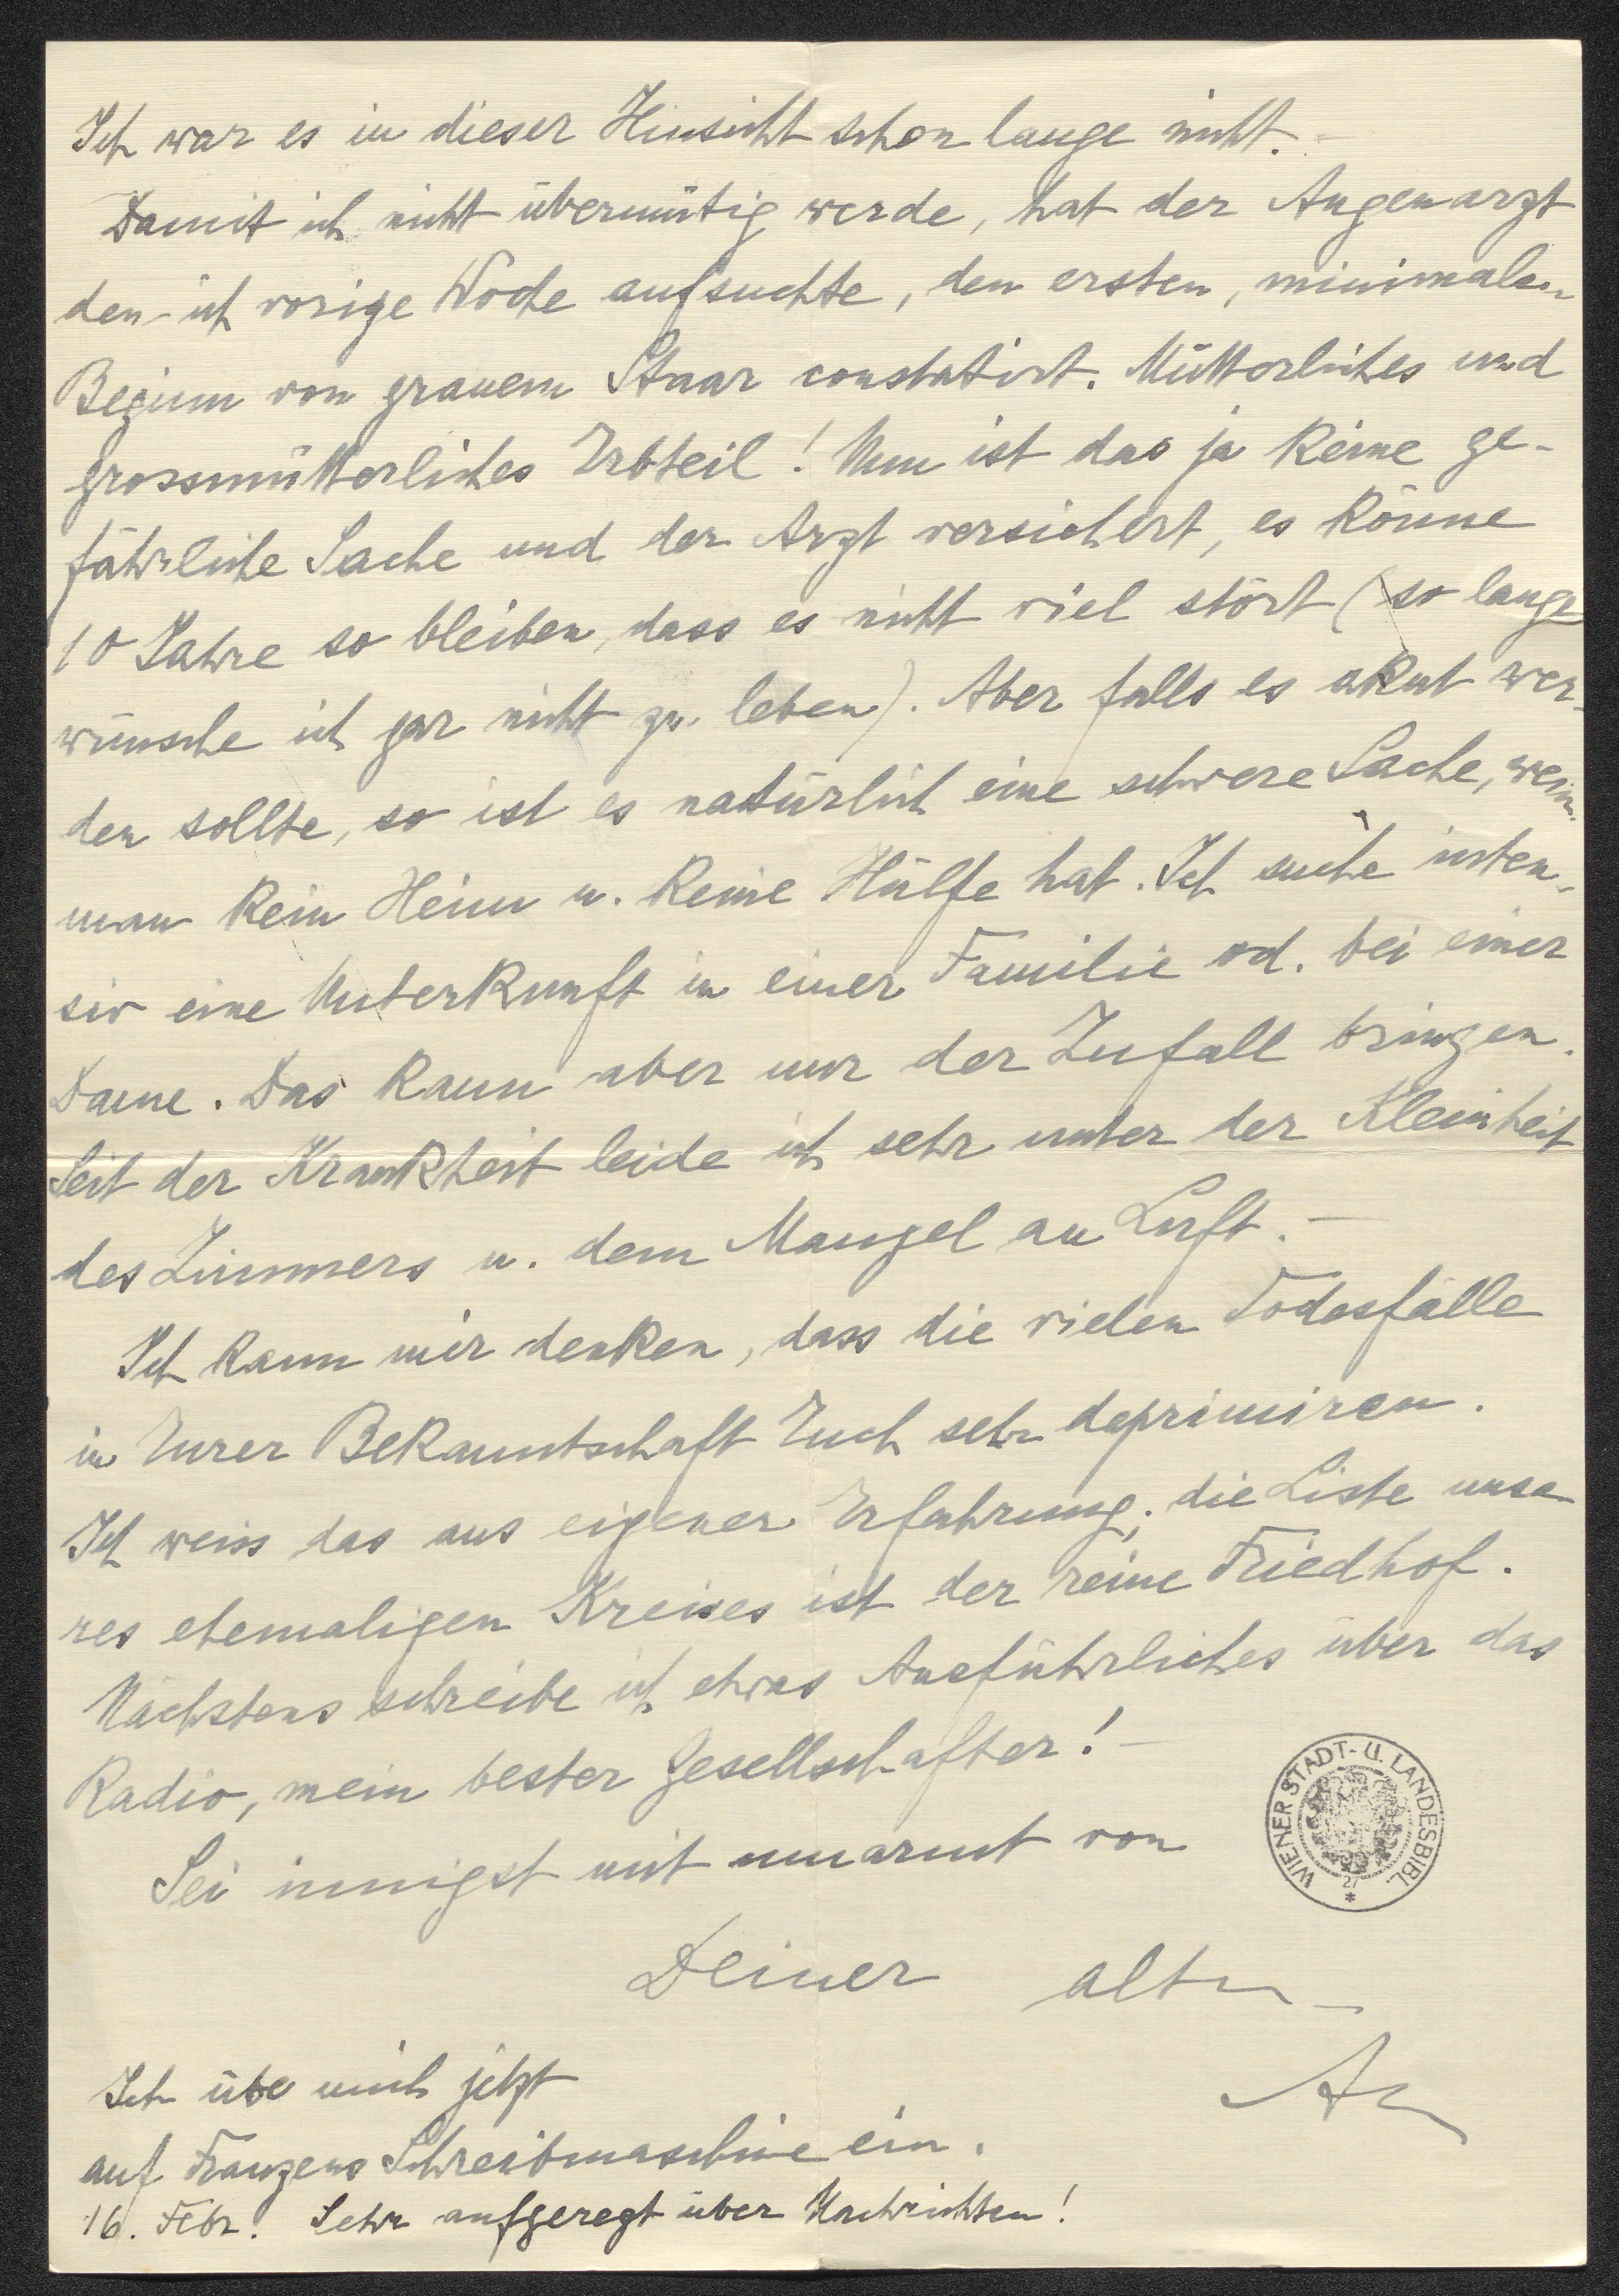 Ich war es in dieser Hinsicht schon lange nicht. –
Damit ich nicht übermütig werde, hat der Augenarzt
den ich vorige Woche aufsuchte, den ersten, minimalen
Beginn von grauem Staar constatirt. Mütterliches und
grossmütterliches Erbteil! Nun ist das ja keine ge-
fährliche Sache und der Arzt versichert, es könne
10 Jahre so bleiben, dass es nicht viel stört (so lange
wünsche ich gar nicht zu leben). Aber falls es akut wer-
den sollte, so ist es natürlich eine schwere Sache, wenn
man kein Heim u. keine Hülfe hat. Ich suche inten-
siv eine Unterkunft in einer Familie od. bei einer
Dame. Das kann aber nur der Zufall bringen.
Seit der Krankheit leide ich sehr unter der Kleinheit
des Zimmers u. dem Mangel an Luft. –
Ich kann mir denken, dass die vielen Todesfälle
in Eurer Bekanntschaft Euch sehr deprimiren.
Ich weiss das aus eigener Erfahrung; die Liste unse
res ehemaligen Kreises ist der reine Friedhof.
Nächstens schreibe ich etwas Ausführliches über das
Radio, mein bester Gesellschafter! –
WIENER STADT- U. LANDESBIBL.
27
*
Sei innigst mit umarmt von
Deiner alten
Ich übe mich jetzt
auf Franzens Schreibmaschine ein.
16. Febr. Sehr aufgeregt über Nachrichten!